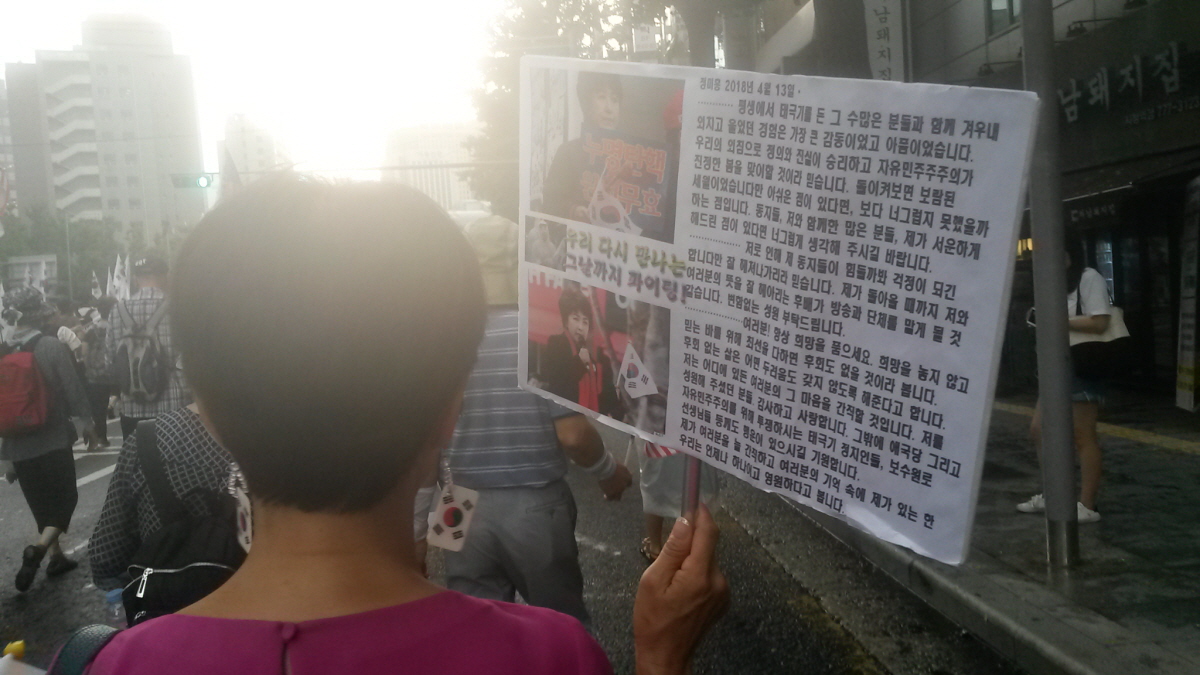 정미홍 2018년 4월 13일 ·
평생에서 태극기를 든 그 수많은 분들과 함께 겨우내
외치고 울었던 경험은 가장 큰 감동이었고 아픔이었습니다.
우리의 외침으로 정의와 진실이 승리하고 자유민주주의가
진정한 봄을 맞이할 것이라 믿습니다. 돌이켜보면 보람된
세월이었습니다만 아쉬운 점이 있다면, 보다 너그럽지 못했을까
하는 점입니다. 동지들, 저와 함께한 많은 분들, 제가 서운하게
해드린 점이 있다면 너그럽게 생각해 주시길 바랍니다.
저로 인해 제 동지들이 힘들까봐 걱정이 되긴
합니다만 잘 헤쳐나가리라 믿습니다. 제가 돌아올 때까지 저와
여러분의 뜻을 잘 헤아리는 후배가 방송과 단체를 맡게 될 것
같습니다. 변함없는 성원 부탁드립니다.
여러분! 항상 희망을 품으세요. 희망을 놓지 않고
믿는 바를 위해 최선을 다하면 후회도 없을 것이라 봅니다.
후회 없는 삶은 어떤 두려움도 갖지 않도록 해준다고 합니다.
저는 어디에 있든 여러분의 그 마음을 간직할 것입니다. 저를
성원해 주셨던 분들 감사하고 사랑합니다. 그밖에 애국당 그리고
자유민주주의를 위해 투쟁하시는 태극기 정치인들, 보수원로
선생님들 등께도 행운이 있으시길 기원합니다.
제가 여러분을 늘 간직하고 여러분의 기억 속에 제가 있는 한
우리는 언제나 하나이고 영원하다고 봅니다.
우리 다시 만나는
그날까지 파이팅!
남돼지집
남돼지집